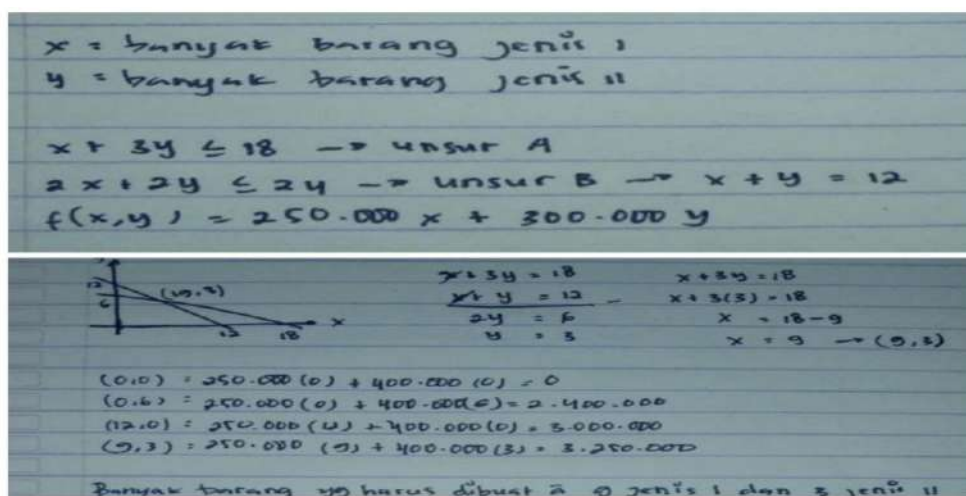 x = banyak barang jenis I
y = banyak barang jenis II
x + 3y ≤ 18 → unsur A
2x + 2y ≤ 24 → unsur B → x + y = 12
f(x,y) = 250.000 x + 300.000 y
12
6
(9,3)
12
18
x
x + 3y = 18
x + y = 12 -
2y = 6
y = 3
x + 3y = 18
x + 3(3) = 18
x = 18 - 9
x = 9 → (9,3)
(0,0) = 250.000 (0) + 400.000 (0) = 0
(0,6) = 250.000 (0) + 400.000(6) = 2.400.000
(12,0) = 250.000 (12) + 400.000(0) = 3.000.000
(9,3) = 250.000 (9) + 400.000 (3) = 3.250.000
Banyak barang yg harus dibuat 9 jenis I dan 3 jenis II